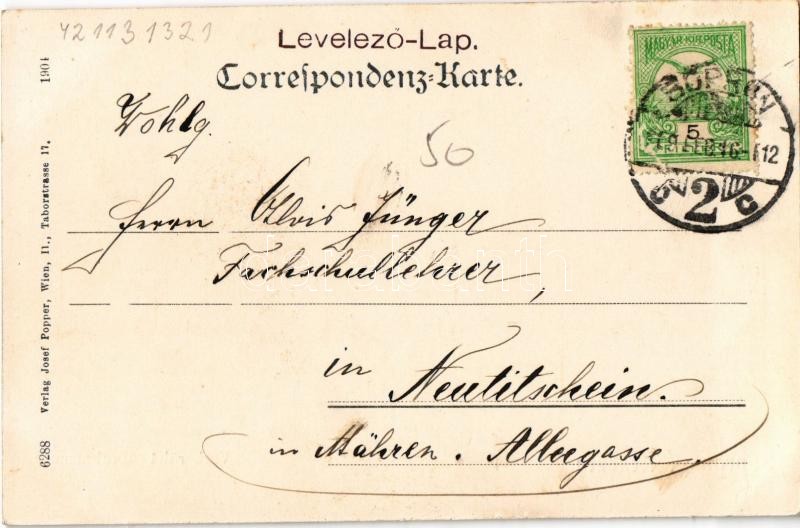 421131321
Levelező-Lap.
Correspondenz-Karte.
MAGYAR·KIR·POSTA
5
SOPRON
2
C C
Wohlg.
50
Herrn Alois Jünger
Fachschullehrer,
in Neutitschein.
in Mähren. Alleegasse
6288 Verlag Josef Popper, Wien, II., Taborstrasse 17. 1904